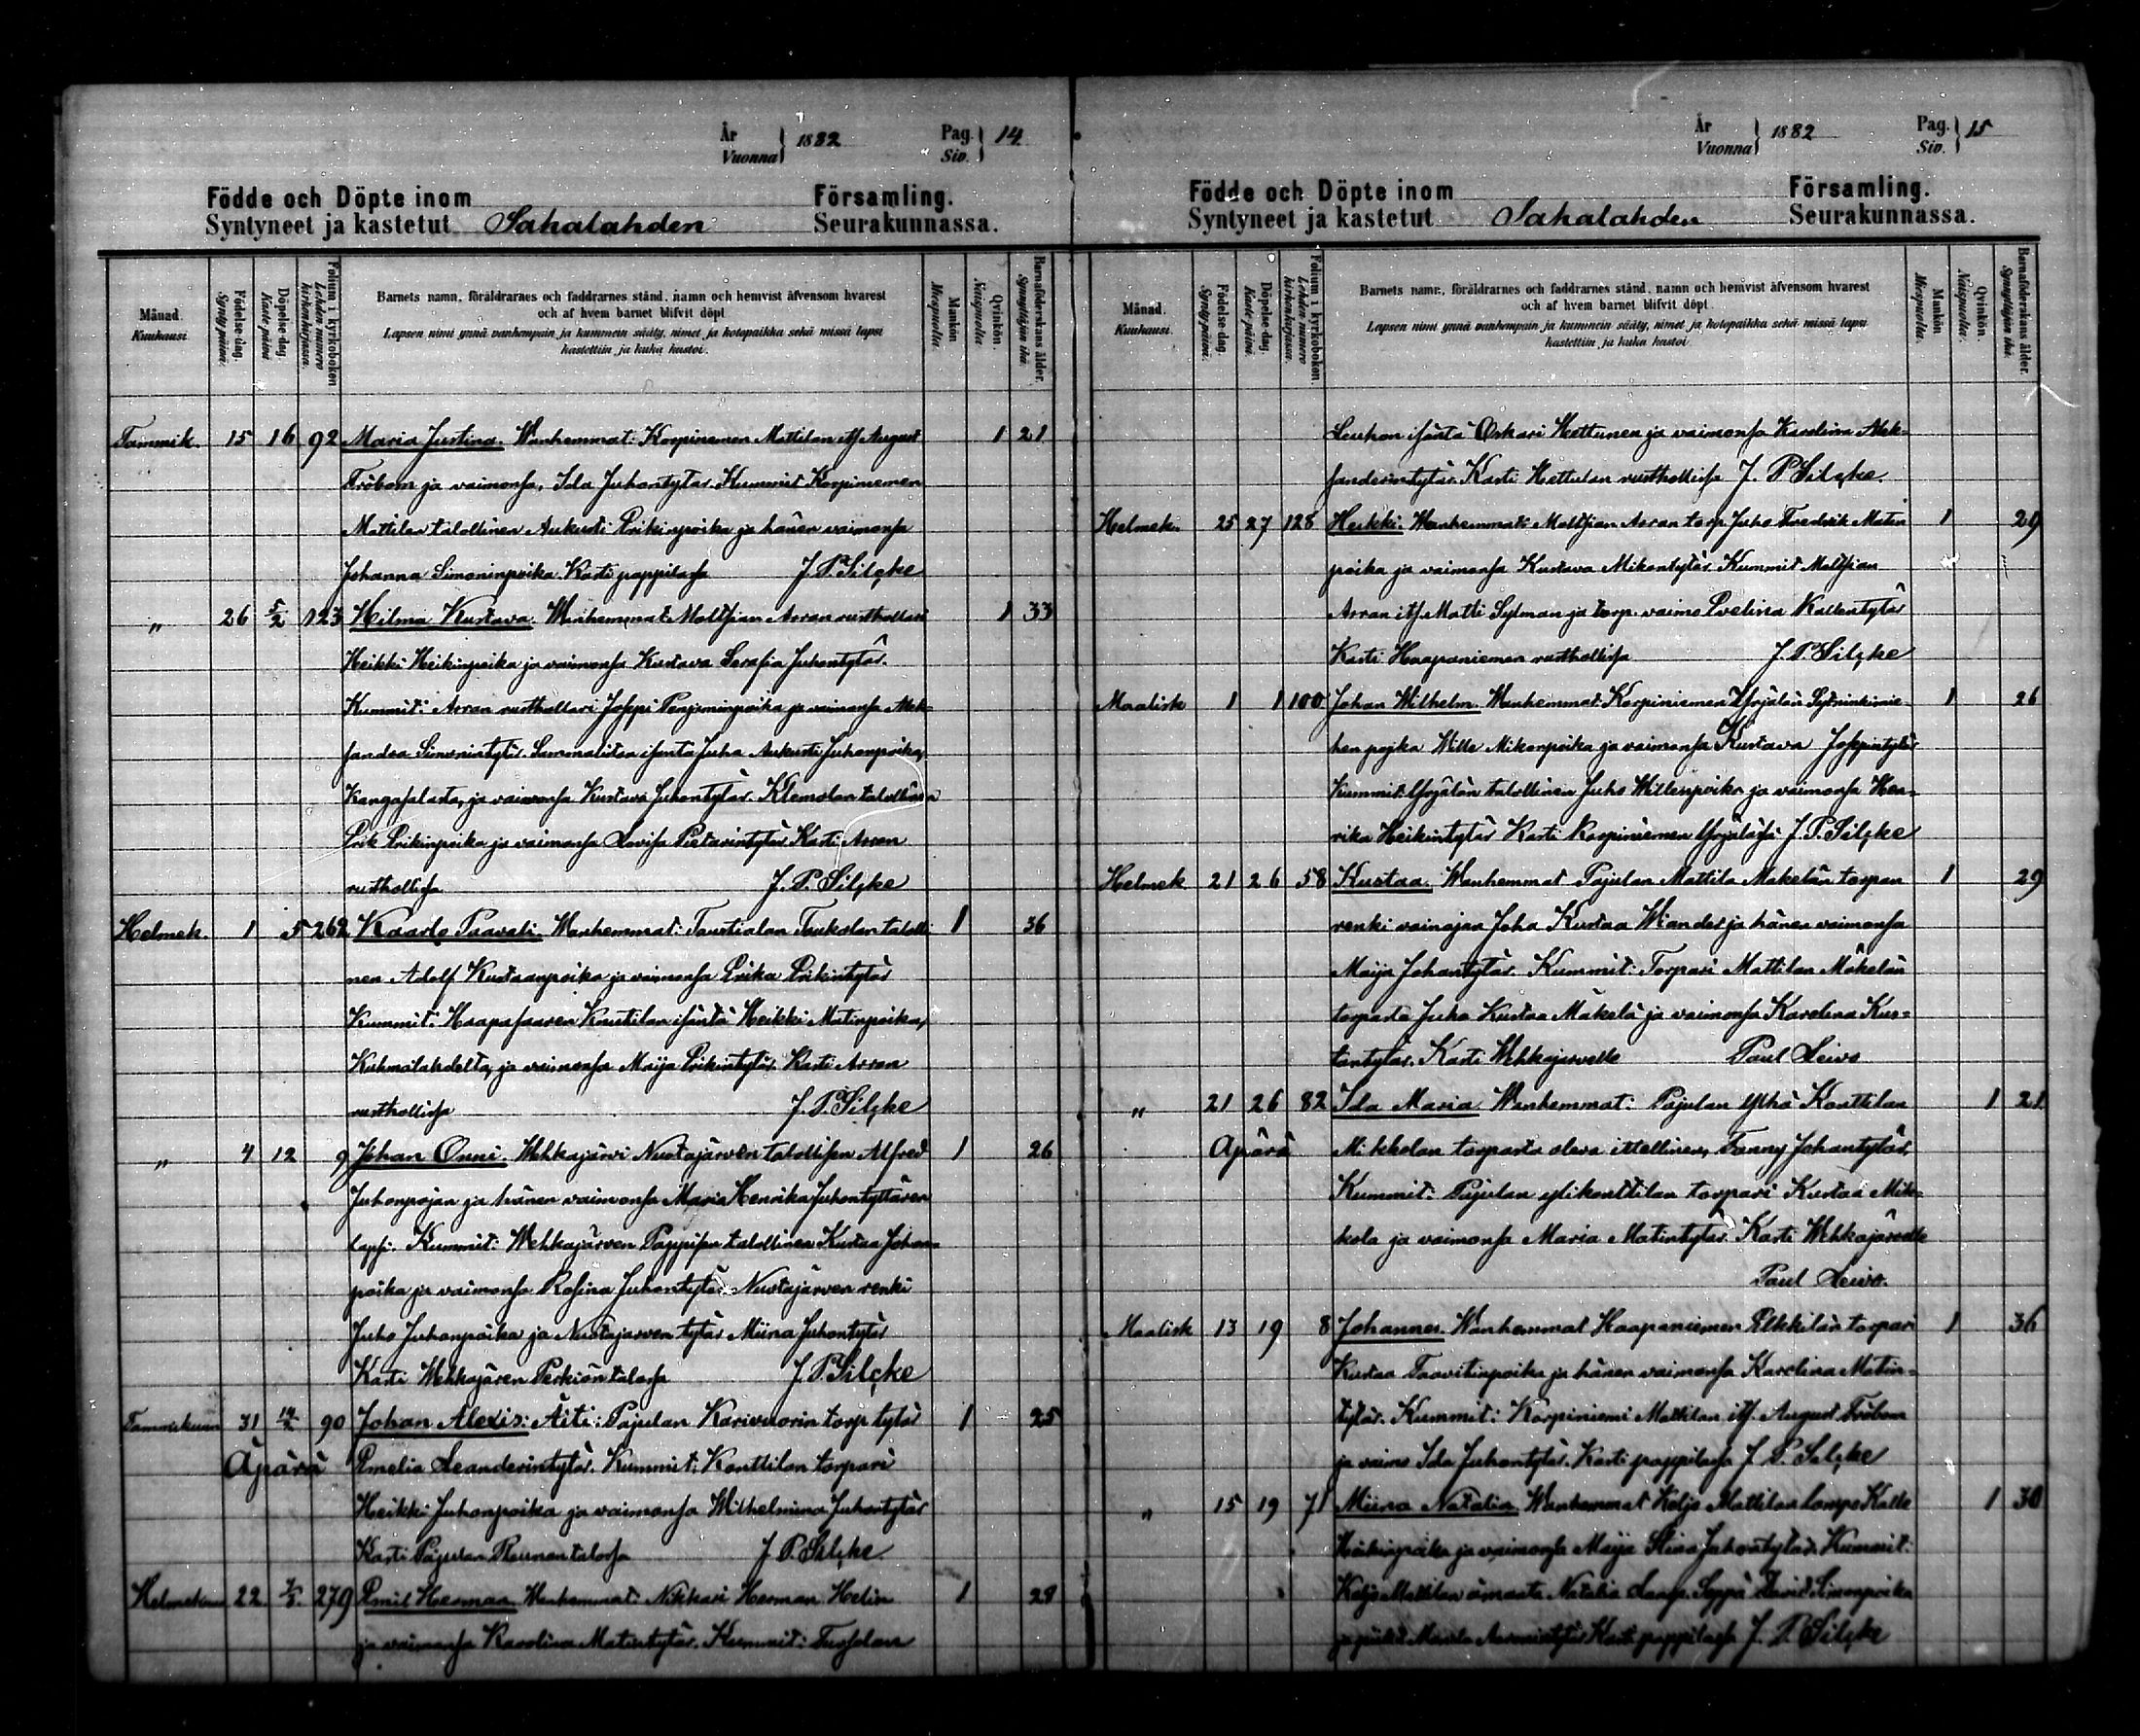 År
Vuonna } 1882
Pag.
Siv. } 14
Födde och Döpte inom Församling.
Syntyneet ja kastetut Sahalahden Seurakunnassa.
Månad. Kuukausi.
Födelse-dag. Synty-päivä.
Döpelse-dag. Kaste-päivä.
Folium i kyrkoboken. Lehden numero kirkonkirjassa.
Barnets namn, föräldrarnes och faddrarnes stånd, namn och hemvist äfvensom hvarest
och af hvem barnet blifvit döpt.
Lapsen nimi ynnä vanhempain ja kummein sääty, nimet ja kotopaikka sekä missä lapsi
kastettiin ja kuka kastoi.
Mankön. Miespuolta.
Qvinkön. Naispuolta.
Barnaföderskans ålder. Synnyttäjän ikä.
Tammik. 15 16 92 Maria Justina. Wanhemmat: Korpiniemen Mattilan its August 1 21
Fröbom ja vaimonsa, Ida Juhontytär. Kummit Korpiniemen
Mattilan talollinen Aukusti Erikinpoika ja hänen vaimonsa
Johanna Simoninpoika Kasti pappilassa J. P. Silçke
" 26 5/2 123 Hilma Kustava. Wanhemmat: Moltsian Arran rusthollari 1 33
Heikki Heikinpoika ja vaimonsa Kustava Serafia Juhontytär.
Kummit: Arran rusthollari Joseppi Penjaminpoika ja vaimonsa Alek-
sandra Simonintytär. isäntä Juha Aukusti Juhonpoika,
Kangasalasta, ja vaimonsa Kustava Juhontytär. Klemolan talollinen
Erik Erikinpoika ja vaimonsa Lovisa Pietarintytär Kasti Arran
rusthollissa J. P. Silçke
Helmek. 1 5 262 Kaarlo Paavali. Wanhemmat: Taustialan Taukolan talolli- 1 36
nen Adolf Kustaanpoika ja vaimonsa Erika Erikintytär
Kummit: Haapasaaren Knutilan isäntä Heikki Matinpoika,
Kuhmalahdelta, ja vaimonsa Maija Erikintytär. Kasti Arran
rusthollissa J. P. Silçke
" 4 12 9 Johan Onni. Wehkajärvi Nustajärven talollisen Alfred 1 26
Juhonpojan ja hänen vaimonsa Maria Henrika Juhontyttären
lapsi. Kummit: Wehkajärven Pappisen talollinen Kustaa Johan-
poika ja vaimonsa Rosina Juhontytär. Nustajärven renki
Juho Juhonpoika ja Nustajärven tytär Miina Juhontytär
Kasti Wehkajären Perkiön talossa J. P. Silçke
Tammikuun 31 14/2 90 Johan Alexis: Äiti: Pajulan Karivuorin torp tytär 1 25
Äpärä Emelia Leanderintytär. Kummit: Konttilan torpari
Heikki Juhonpoika ja vaimonsa Wilhelmina Juhontytär
Kasti Pajulan talossa J. P. Silçke.
Helmekuu 22 279 Emil Herman Wanhemmat: Nikkari Herman Helin 1 28
ja vaimonsa Karolina Matintytär. Kummit:
År
Vuonna } 1882
Pag.
Siv. } 15
Födde och Döpte inom Församling.
Syntyneet ja kastetut Sahalahden Seurakunnassa.
Månad. Kuukausi.
Födelse-dag. Synty-päivä.
Döpelse-dag. Kaste-päivä.
Folium i kyrkoboken. Lehden numero kirkonkirjassa.
Barnets namn, föräldrarnes och faddrarnes stånd, namn och hemvist äfvensom hvarest
och af hvem barnet blifvit döpt.
Lapsen nimi ynnä vanhempain ja kummein sääty, nimet ja kotopaikka sekä missä lapsi
kastettiin ja kuka kastoi.
Mankön. Miespuolta.
Qvinkön. Naispuolta.
Barnaföderskans ålder. Synnyttäjän ikä.
isäntä Oskari Hettunen ja vaimonsa Karolina Alek-
sanderintytär. Kasti Hettulan rusthollissa J. P. Silçke.
Helmek. 25 27 128 Heikki. Wanhemmat: Moltsian Arran torp. Juho Fredrik Matin 1 29
poika ja vaimonsa Kustava Mikontytär. Kummit Moltsian
Arran its. Matti Sydman ja torp. vaimo Evelina Kallentytär
Kasti Haapaniemen rusthollissa J. P. Silçke
Maalisk 1 1 100 Johan Wilhelm. Wanhemmat: Korpiniemen Yrjälän 1 26
hen pojka Wille Mikonpoika ja vaimonsa Kustava Josepintytär
Kummit: Yrjälän talollinen Juho Willenpoika ja vaimonsa Hen-
rika Heikintytär Kasti Korpiniemen Yrjälässä J. P. Silçke
Helmek 21 26 58 Kustaa. Wanhemmat Pajulan Mattila Makelän torpan 1 29
renki vainajaa Joha Kustaa Wiander ja hänen vaimonsa
Maija Johantytär. Kummit: Torpari Mattilan Mäkelän
torpasta Juho Kustaa Mäkelä ja vaimonsa Karolina Kus-
tantytär. Kasti Wehkajarvella Paul Leivo
" 21 26 82 Ida Maria Wanhemmat: Pajulan Ylhä Konttilan 1 21
Äpärä Mikkolan torpasta oleva itsellinen, Fanny Johantytär,
Kummit: Pajulan ylikonttilan torpari Kustaa Mik-
kola ja vaimonsa Maria Matintytär. Kasti Wehkajärvella
Paul Leivo.
Maalisk 13 19 8 Johannes. Wanhemmat Haapaniemen torpari 1 36
Kustaa Taavitinpoika ja hänen vaimonsa Karolina Matin-
tytär. Kummit: Korpiniemi Mattilan its. August Fröbom
ja vaimo Ida Juhontytär. Kasti pappilassa J. P. Silçke
" 15 19 71 Miina Natalia. Wanhemmat Keljo Mattilan Kalle 1 30
Heikinpoika ja vaimonsa Maija Stina Juhontytär. Kummit:
Keljo Mattilan emäntä Natalia Seppä David Simonpoika
Kasti pappilassa J. P. Silçke